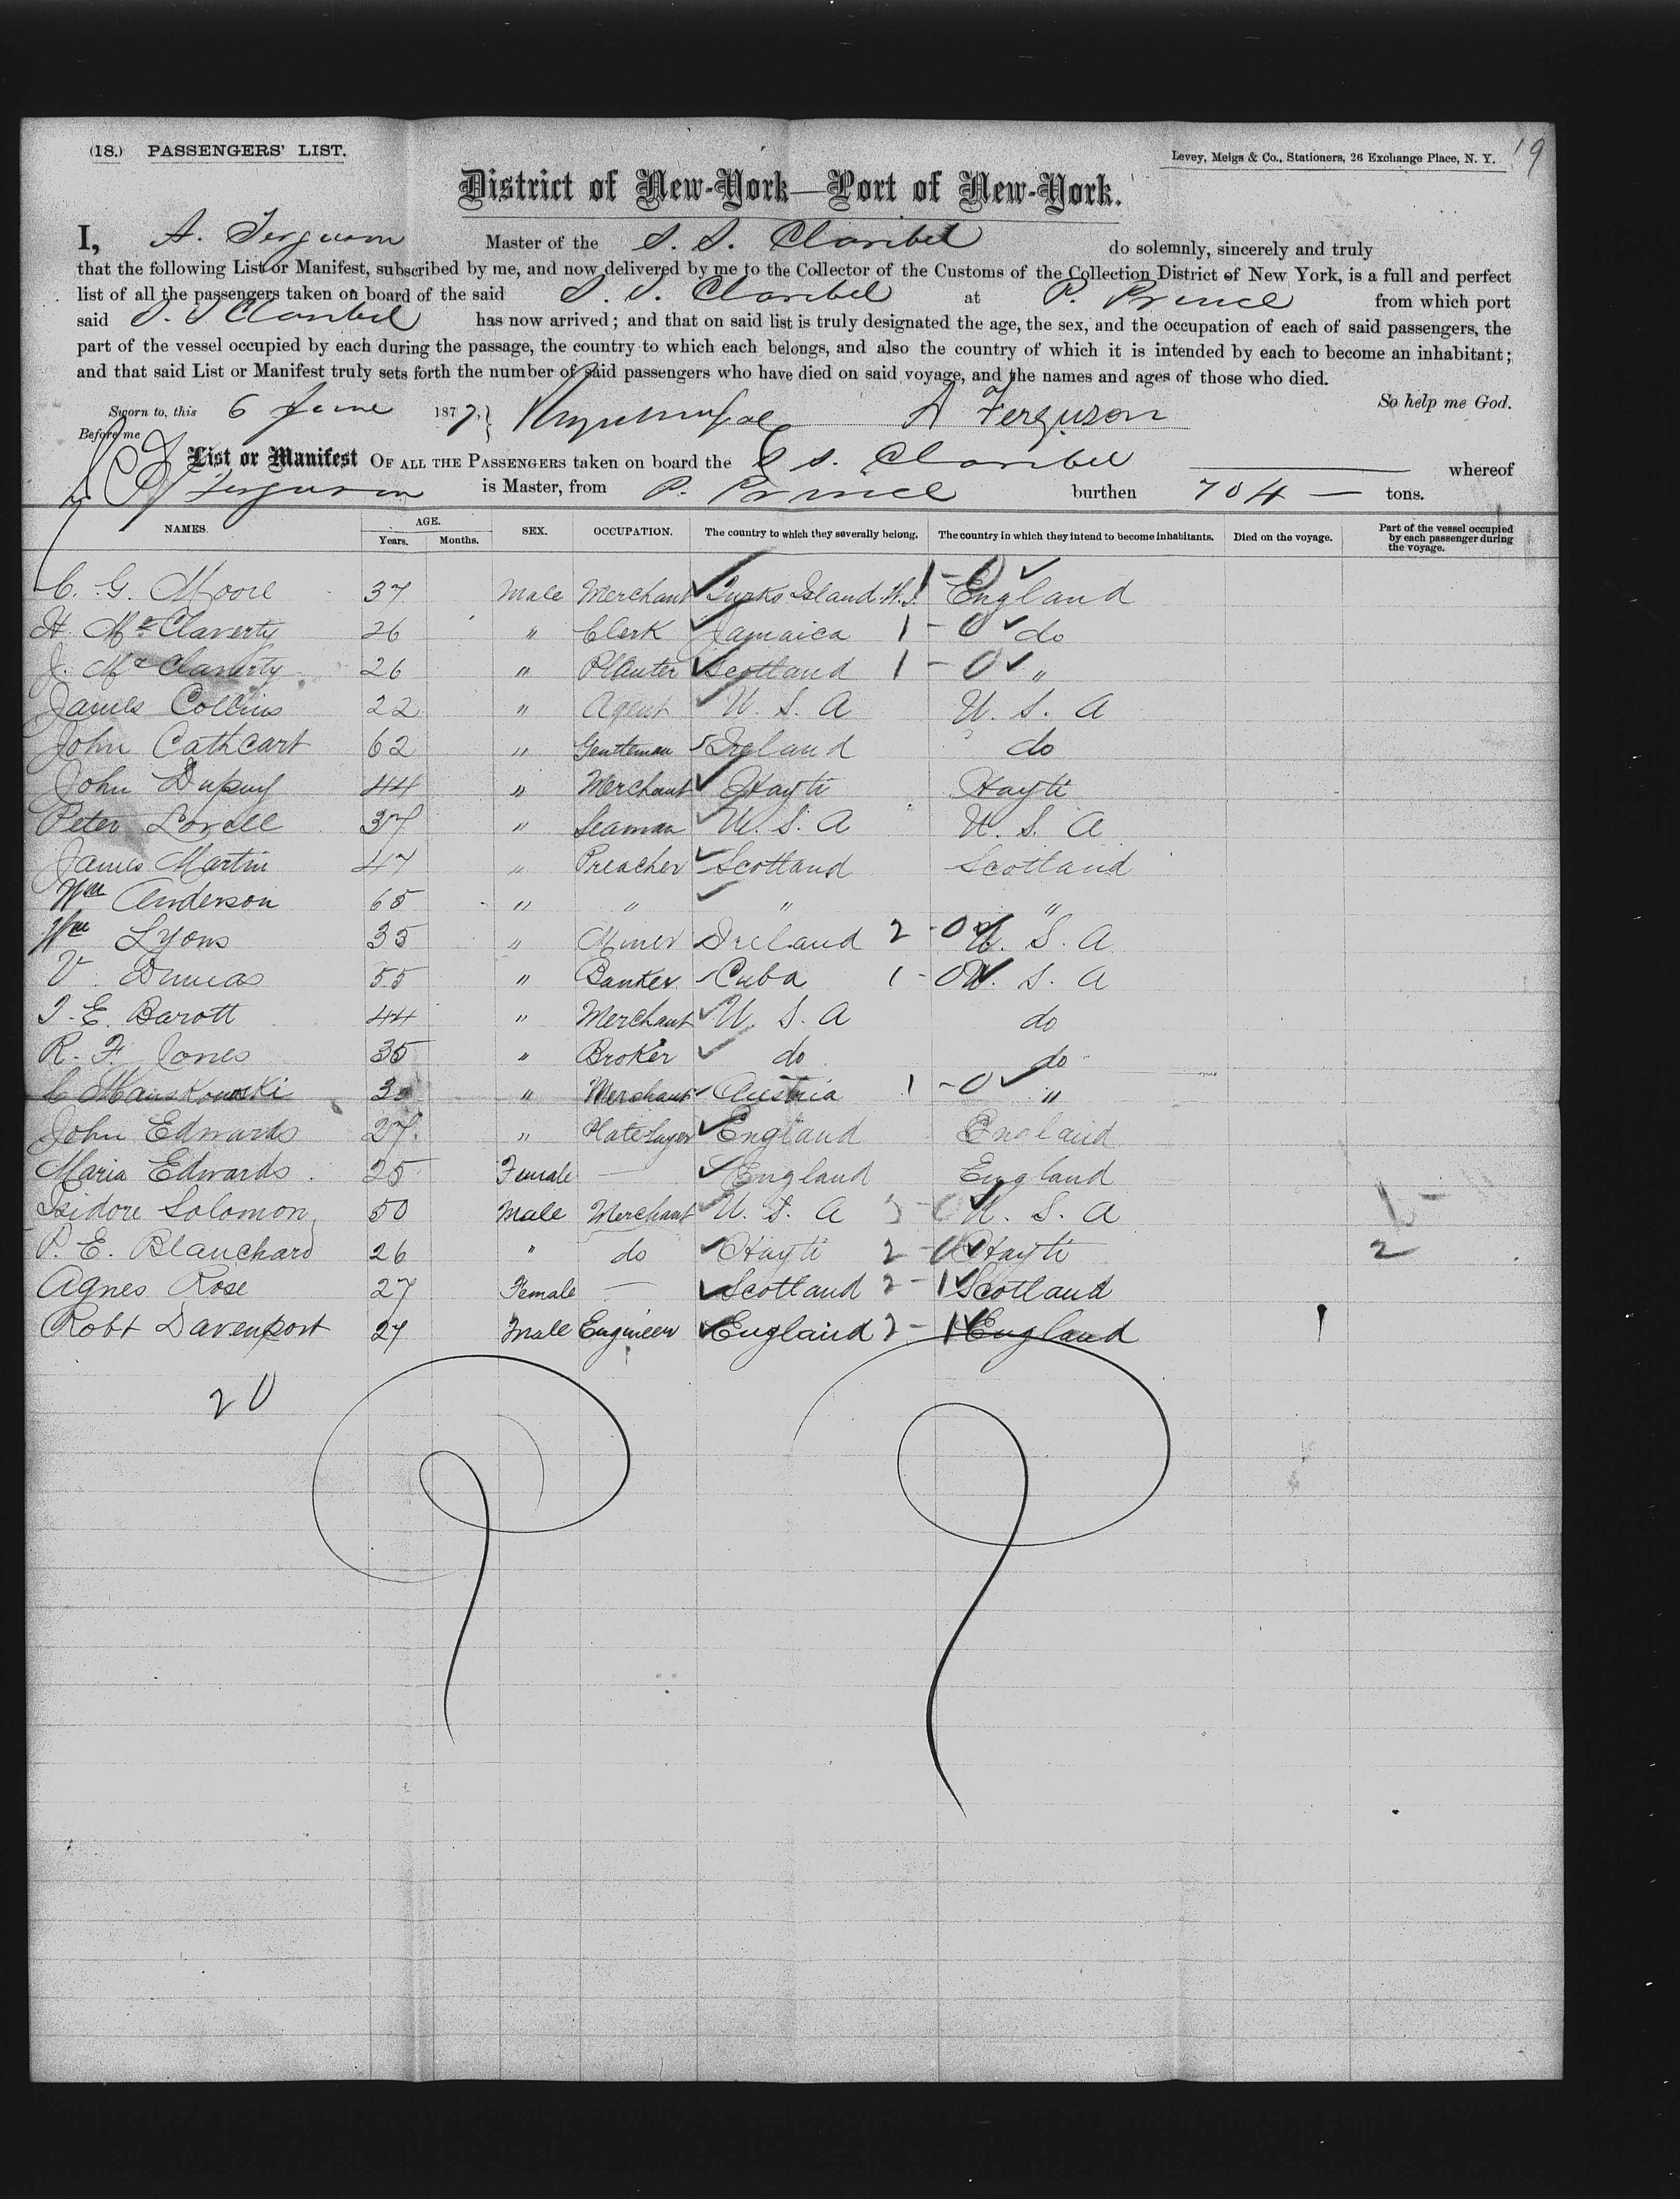 (18.) PASSENGERS' LIST.
Levey, Meigs & Co., Stationers, 26 Exchange Place, N. Y. 19
District of New-York—Port of New-York.
I, A. Ferguson Master of the S. S. Claribel do solemnly, sincerely and truly
that the following List or Manifest, subscribed by me, and now delivered by me to the Collector of the Customs of the Collection District of New York, is a full and perfect
list of all the passengers taken on board of the said S. S. Claribel at P. Prince from which port
said S. S Claribel has now arrived; and that on said list is truly designated the age, the sex, and the occupation of each of said passengers, the
part of the vessel occupied by each during the passage, the country to which each belongs, and also the country of which it is intended by each to become an inhabitant;
and that said List or Manifest truly sets forth the number of said passengers who have died on said voyage, and the names and ages of those who died.
So help me God.
Sworn to, this 6 June 1877, A Ferguson
Before me
List or Manifest OF ALL THE PASSENGERS taken on board the S S. Claribel whereof
Ferguson is Master, from P. Prince burthen 704 — tons.
NAMES. AGE. Years. Months. SEX. OCCUPATION. The country to which they severally belong. The country in which they intend to become inhabitants. Died on the voyage. Part of the vessel occupied by each passenger during the voyage.
C. G. Moore 37 Male Merchant Turks Island W.I. 1 - 0 England
H. McClaverty 26 " Clerk Jamaica 1 - 0 do
J. McClaverty 26 " Planter Scotland 1 - 0 "
James Collins 22 " Agent U. S. A U. S. A
John Cathcart 62 " Gentleman Ireland do
John Dupuy 44 " Merchant Hayti Hayti
Peter Lovell 37 " Seaman U. S. A U. S. A
James Martin 47 " Preacher Scotland Scotland
Wm Anderson 65 " " " "
Wm Lyons 35 " Miner Ireland 2 - 0 U. S. A
V. Dumas 55 " Banker Cuba 1 - 0 U. S. A
J. E. Barott 44 " Merchant U. S. A do
R. F. Jones 35 " Broker do do
C Manskowski 30 " Merchant Austria 1 - 0 "
John Edwards 27. " Plate Layer England England
Maria Edwards 25 Female — England England
Isidore Solomon 50 Male Merchant U. S. A U. S. A
P. E. Blanchard 26 " do Hayti 2 - 0 Hayti 2
Agnes Rose 27 Female — Scotland 2 - 1 Scotland
Robt Davenport 27 Male Engineer England 2 - 1 England 1
20